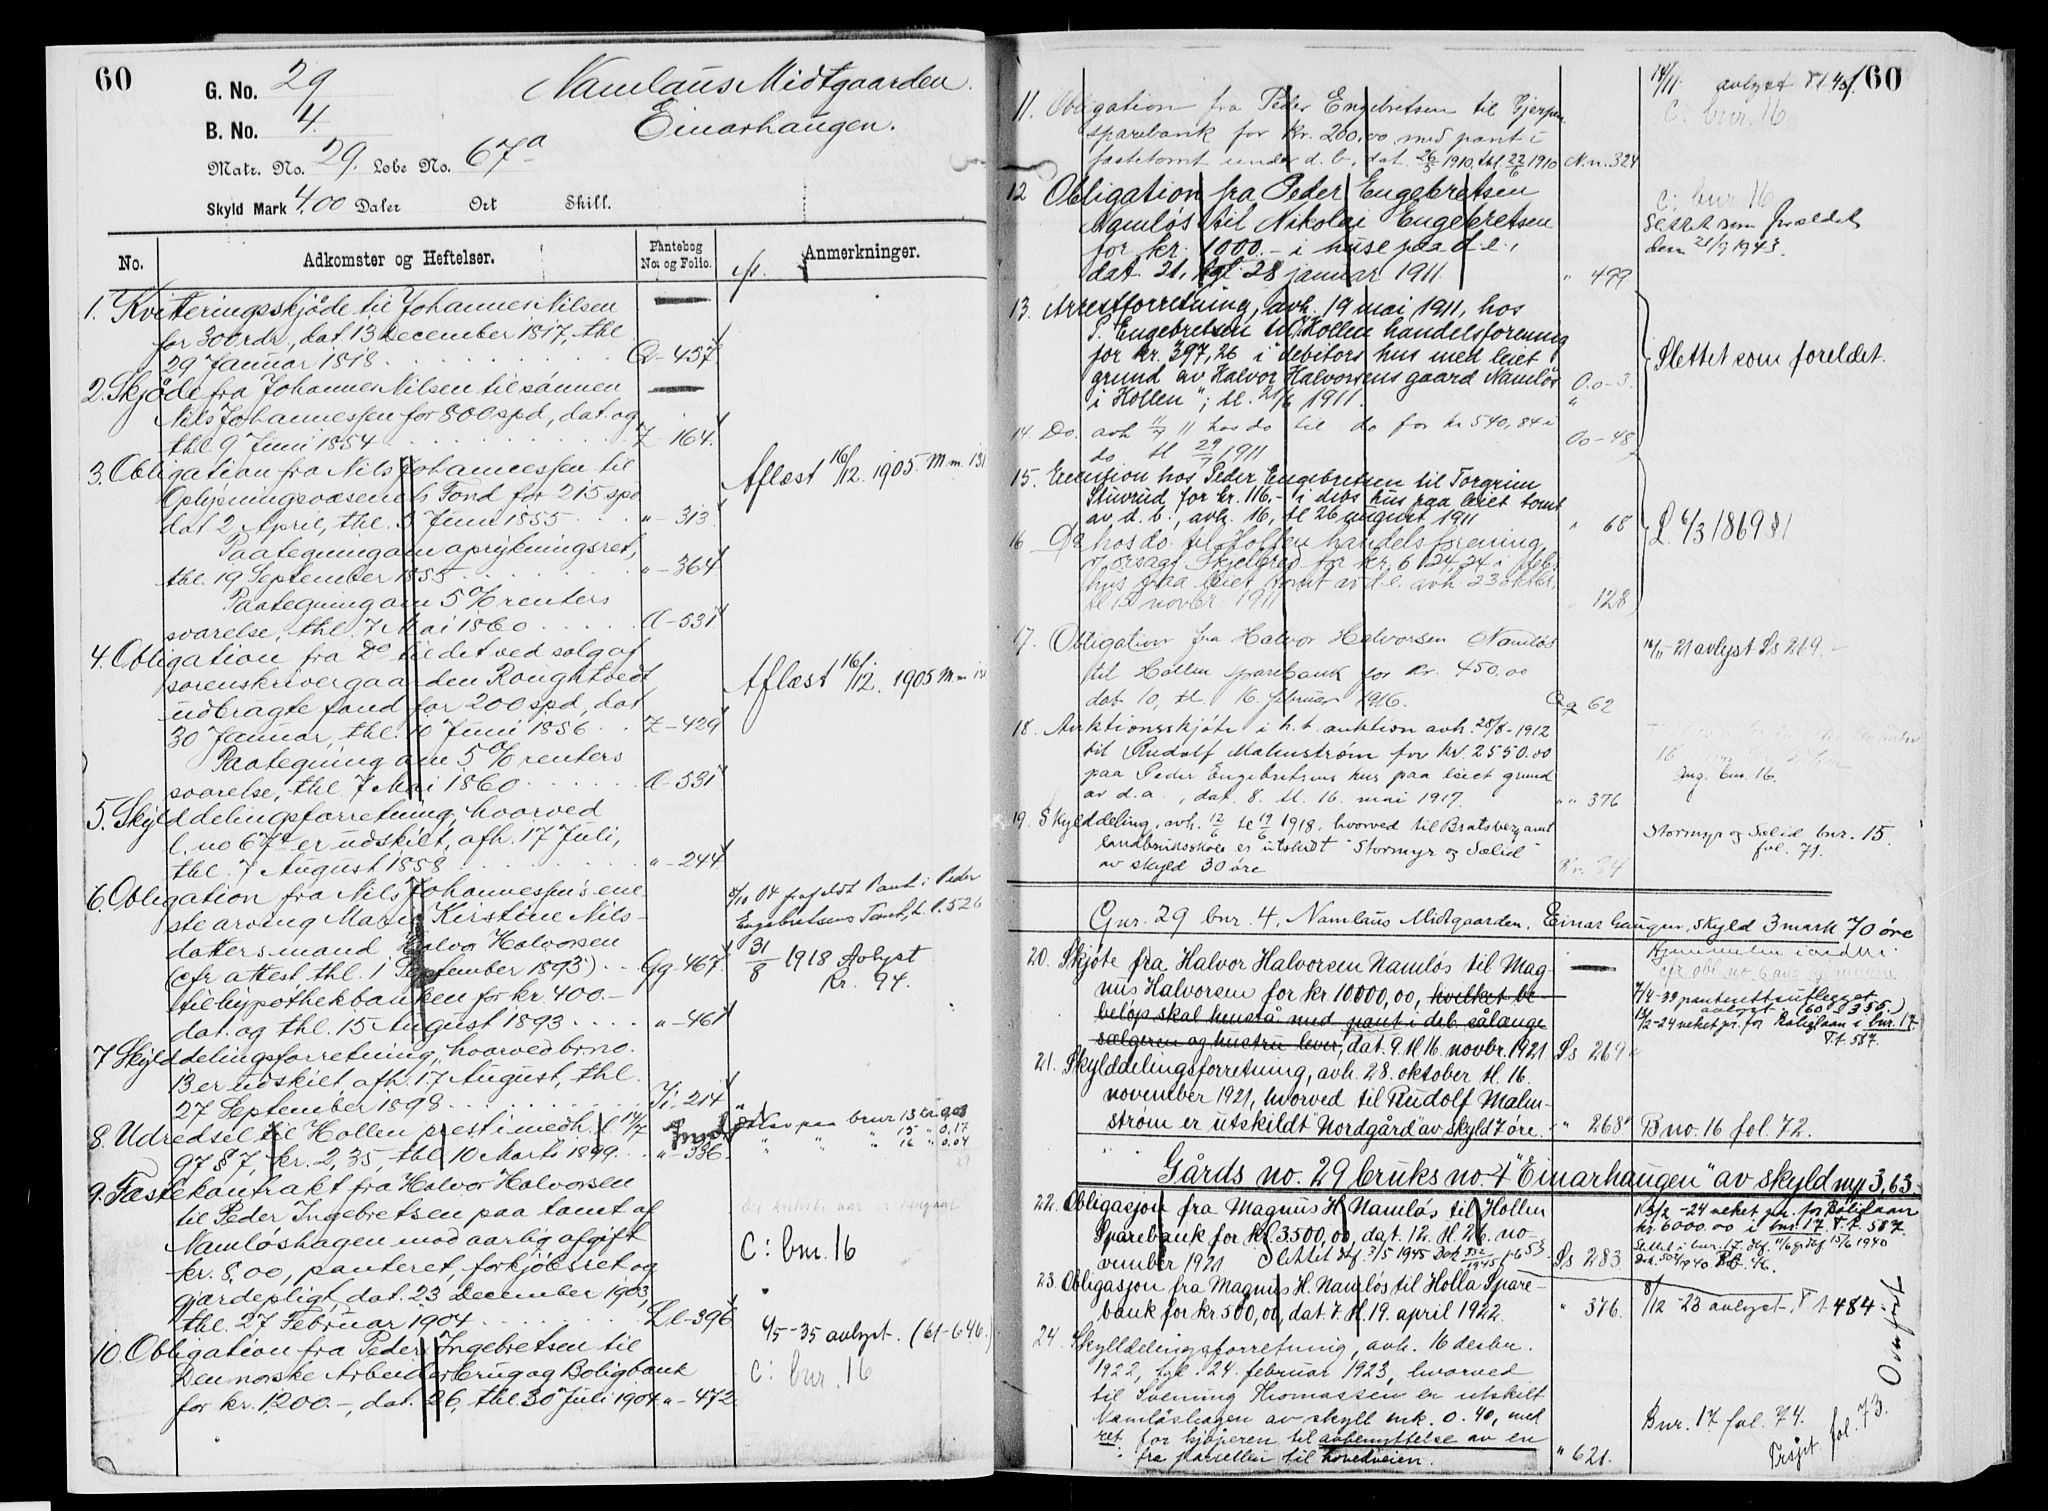 60
G. No. 29
Namlaus Midtgaarden.
B. No. 4.
Einarhaugen.
Matr. No. 29. Løbe No. 67a
Skyld Mark 4,00 Daler Ort Skill.
No. Adkomster og Heftelser. Pantebog No. og Folio. Anmerkninger.
1. Kvitteringsskjøde til Johannes Nilsen
for 300 rdr, dat. 13 December 1817, thl
29 Januar 1818 457
2. Skjøde fra Johannes Nilsen til sønnen
Nils Johannessen for 800 spd, dat. og
thl. 9 Juni 1854 Z - 164.
3. Obligation fra Nils Johannessen til
Oplysningsvæsenets Fond for 215 spd
dat 2 April, thl. 5 Juni 1855 " - 313
Aflæst 16/12. 1905. M m. 131
Paategning om oprykningsret,
thl. 19 September 1855 " - 364
Paategning om 5 % renters
svarelse, thl. 7 Mai 1860 A - 531
4. Obligation fra Do til det ved salg af
sorenskrivergaarden Roughtvedt
udbragte fond for 200 spd, dat
30 Januar, thl. 10 Juni 1856 Z - 429
Aflæst 16/12. 1905 M m 131
Paategning om 5 % renters
svarelse, thl. 7 Mai 1860 A - 531
5. Skylddelingsforretning, hvorved
l. no 67b er udskilt, afh. 17 Juli,
thl. 7 August 1858 " - 244
6. Obligation fra Nils Johannessens ene-
ste arving Maria Kirstine Nils-
datters mand Halvor Halvorsen
(cfr attest thl. 1 September 1893) Gg - 467
til hypothekbanken for kr. 400.-
dat. og thl. 15 August 1893 " - 461
04 frafaldt Pant i Peder
Engebretsens Tomt, L l. 526
31/8 1918 Avlyst
Kr. 94.
7. Skylddelingsforretning, hvorved br. no.
13 er udskilt, afh. 17 August, thl.
27 September 1898 Ji - 214
8. Udredsel til Hollen prest i medh. l 14/7
97 § 7, kr. 2,35, thl. 10 Marts 1899 " - 336
paa bnur 13 kr 0.08
" " " 15 " 0.17
" " " 16 " 0.04
29
9. Fæstekontrakt fra Halvor Halvorsen
til Peder Ingebretsen paa tomt af
Namløshagen mod aarlig afgift
kr. 8,00, panteret, forkjøbsret og
gjærdepligt, dat. 23 December 1903,
thl. 27 Februar 1904 Ll - 396
C: bnr. 16
4/5 - 35 avlyst. (61 - 646.)
10. Obligation fra Peder Ingebretsen til
Den norske Arbeiderbrug og Boligbank
for kr. 1200.-, dat. 26, thl. 30 Juli 1904. " - 472
C: bnr. 16
60
14/11. avlyst
C: bnr. 16
11. Obligation fra Peder Engebretsen til Gjerpen
sparebank for Kr. 200,00 med pant i
festetomt under d. b., dat. 26/5 1910, thl. 22/6 1910 N. n. 324
12 Obligation fra Peder Engebretsen
Namløs til Nikolai Engebretsen
for kr. 1000.- i huse paa d. e.,
dat. 21, tgl. 28 januar 1911 " 499
C: bnr 16
Slettet som foreldet
den 21/9 1943.
13. Arrestforretning, avh. 19 mai 1911, hos
P. Engebretsen til "Hollen handelsforening
for kr. 397,26 i "debitors hus med leiet
grund av Halvor Halvorsens gaard Namløs
i Hollen"; tl. 21/6 1911. O. o - 3.
14. Do. avh 11/7 11 hos do til do for kr 540,84 i
do tl 29/7 1911 Oo - 48
Slettet som foreldet.
15. Execution hos Peder Engebretsen til Torgrim
Stuvrud for kr. 116,- i debs hus paa leiet tomt
av d. b., avh. 16, tl 26 august 1911 " 68
16 Do hos do til Hollen handelsforening
hus paa leiet tomt av d. e. avh. 23 oktbr.
tl 15 novber 1911 " 128
L 6/3 1869 § 1
17. Obligation fra Halvor Halvorsen Namløs
til Hollen sparebank for Kr. 450.00
dat 10, tl. 16. februar 1916. Qq 62
16/11 - 21 avlyst Ss 269.-
18. Auktionsskjøte i h. t. auktion avh. 28/8 - 1912
til Rudolf Malmstrøm for kr. 2550.00
paa Peder Engebretsens hus paa leiet grund
av d. a., dat. 8. tl. 16. mai 1917. " " 376
Ing. bnr. 16.
19. Skylddeling, avh. 12/6 tl 19/6 1918, hvorved til Bratsberg amt
landbruksskole er utskilt "Stormyr og Sælid"
av skyld 30 øre Kr. 94
Stormyr og Sælid bnr. 15.
fol. 71.
Gnr. 29 bnr. 4, Namlaus Midtgaarden, Einarhaugen, skyld 3 mark 70 øre
20. Skjøte fra Halvor Halvorsen Namløs til Mag-
nus Halvorsen for kr 10000,00, hvilket be-
beløp skal henstå med pant i deb. sålænge
sælgeren og hustru lever, dat. 9. tl 16. novbr. 1921. Ss 269
avlyst (60 S 355)
2 - 24 veket pr. for Boliglaan i bnr. 17.
T. t. 587.
21. Skylddelingsforretning, avh. 28. oktober tl. 16.
november 1921, hvorved til Rudolf Malm-
strøm er utskildt "Nordgård" av skyld 7 øre. " 268
B no. 16 fol. 72.
Gårds no. 29 bruks no. 4 "Einarhaugen" av skyld mrk 3,63.-
22. Obligasjon fra Magnus H. Namløs til Hollen
Sparebank for kr 3.500,00, dat. 12. tl. 26. no-
vember 1921 Slettet Ss 283
- 24 veket pr. for Boliglaan
kr. 6000.00 i bnr. 17. T. t. 587.
23. Obligasjon fra Magnus H. Namløs til Holla Spare-
bank for kr 500,00, dat. 7. tl. 19. april 1922. " 376.
8/12 - 23 avlyst. T t. 484.
24. Skylddelingsforretning, avh. 16 desbr.
1922, tgl. 24. februar 1923, hvorved
til Svening Thomassen er utskilt
Namløshagen av skyll mk. 0.40, med
ret for kjøperen til avbenyttelse av en
fra parsellen til hovedveien. " 621.
Bnr. 17 fol. 74.
Overført
fol. 73.